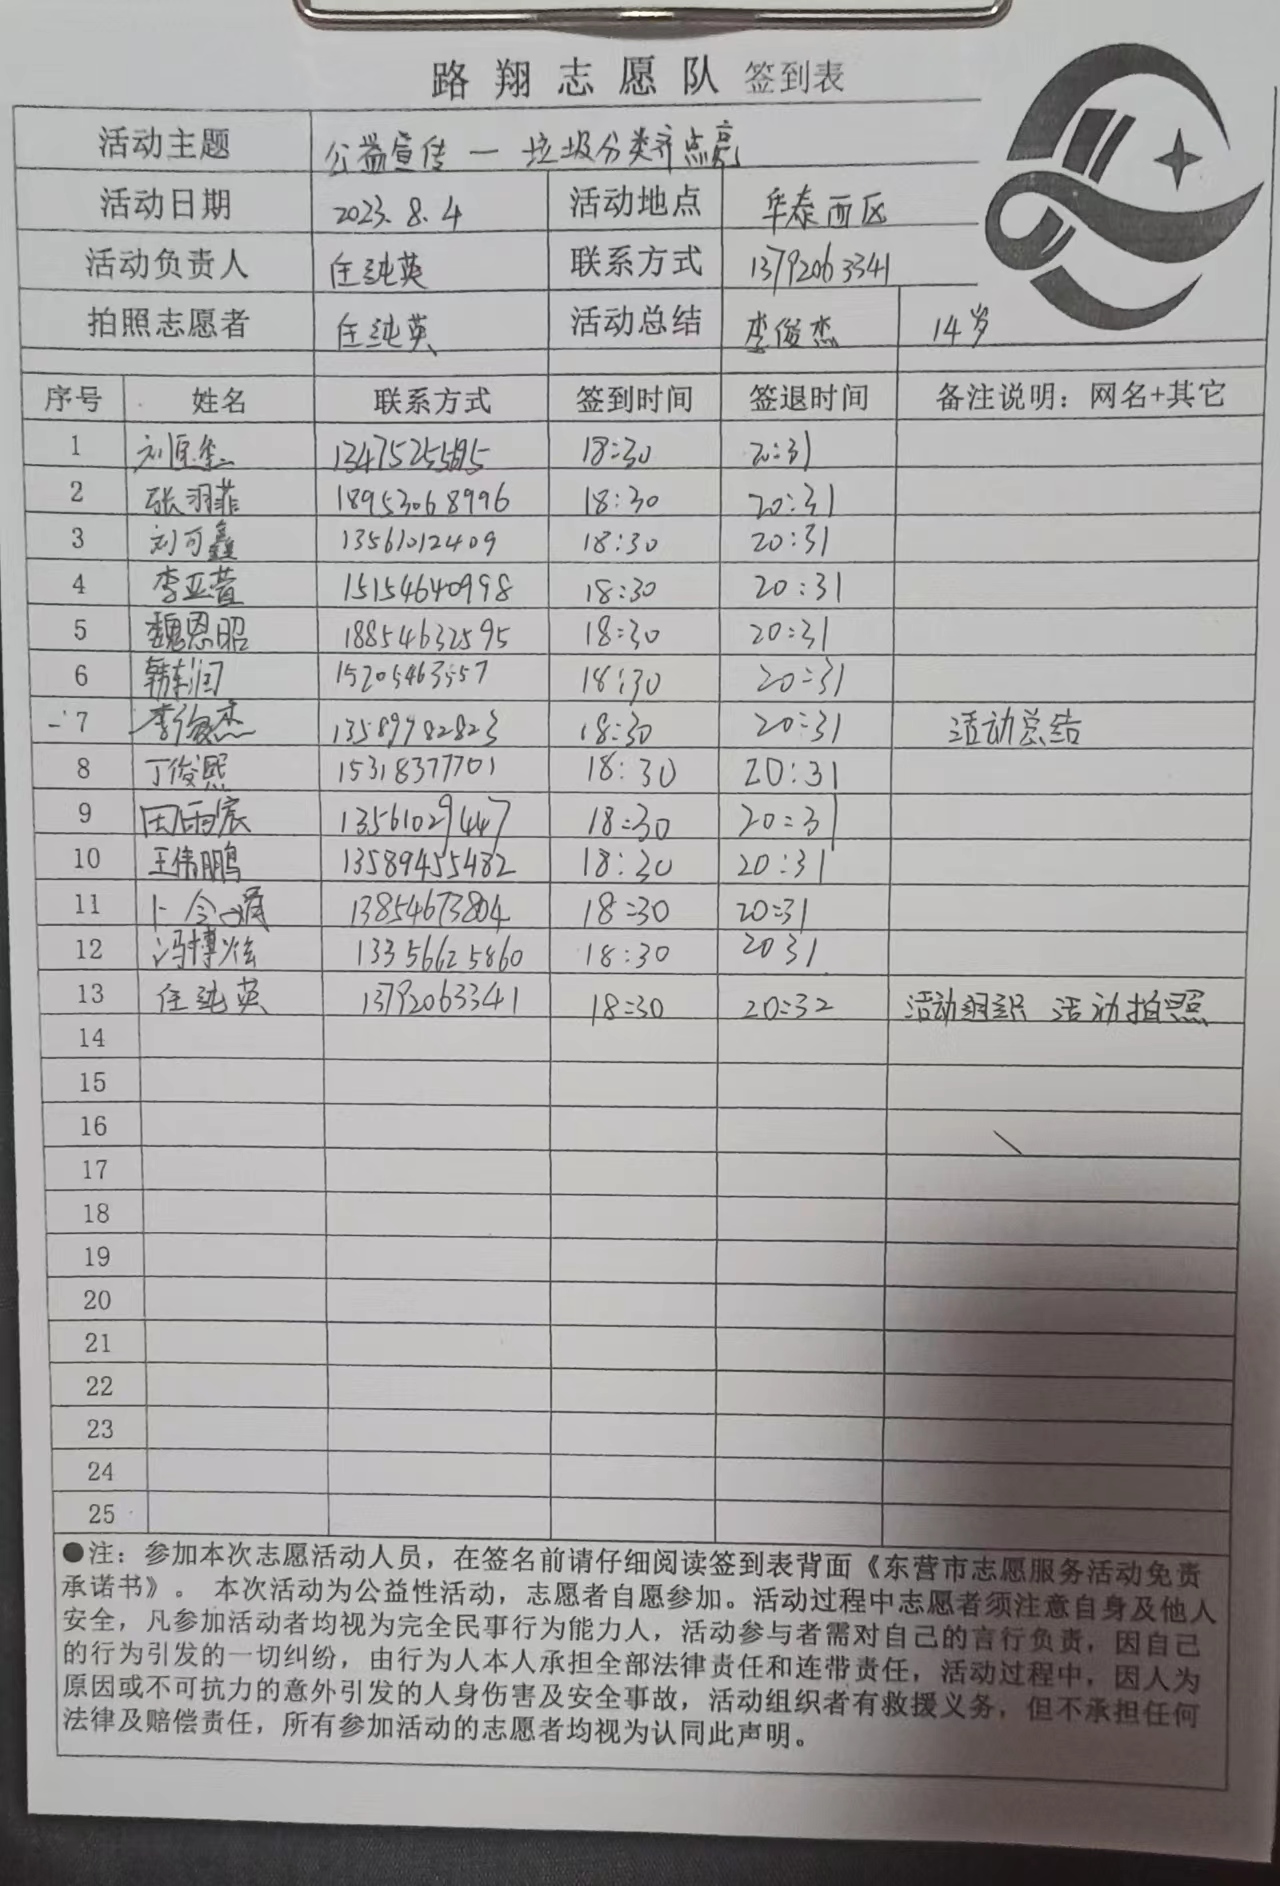 路翔志愿队 签到表
活动主题 公益宣传一垃圾分类齐点亮
活动日期 2023.8.4 活动地点 华泰西区
活动负责人 任纯英 联系方式 13792063341
拍照志愿者 任纯英 活动总结 李俊杰 14岁
序号 姓名 联系方式 签到时间 签退时间 备注说明：网名+其它
1 18:30 20:31
2 张羽菲 18953068996 18:30 20:31
3 刘可鑫 13561012409 18:30 20:31
4 李亚萱 15154640998 18:30 20:31
5 魏恩昭 18854632595 18:30 20:31
6 18:30 20:31
7 李俊杰 13589782823 18:30 20:31 活动总结
8 丁俊熙 15318377701 18:30 20:31
9 田雨宸 13561029447 18:30 20:31
10 王伟鹏 13589455482 18:30 20:31
11 13854673804 18:30 20:31
12 冯博炫 13356625860 18:30 2031
13 任纯英 13792063341 18:30 20:32 活动组织 活动拍照
14
15
16
17
18
19
20
21
22
23
24
25
●注：参加本次志愿活动人员，在签名前请仔细阅读签到表背面《东营市志愿服务活动免责
承诺书》。 本次活动为公益性活动，志愿者自愿参加。活动过程中志愿者须注意自身及他人
安全，凡参加活动者均视为完全民事行为能力人，活动参与者需对自己的言行负责，因自己
的行为引发的一切纠纷，由行为人本人承担全部法律责任和连带责任，活动过程中，因人为
原因或不可抗力的意外引发的人身伤害及安全事故，活动组织者有救援义务，但不承担任何
法律及赔偿责任，所有参加活动的志愿者均视为认同此声明。